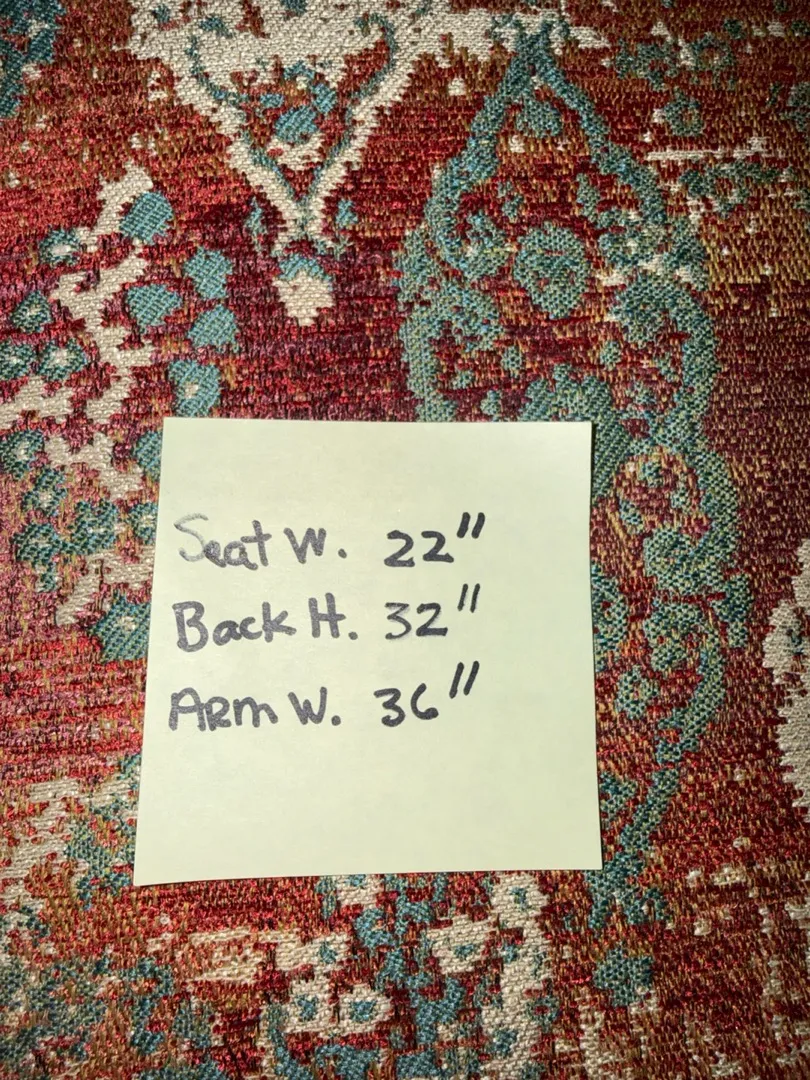 Seat W. 22"
Back H. 32"
ARm W. 36"